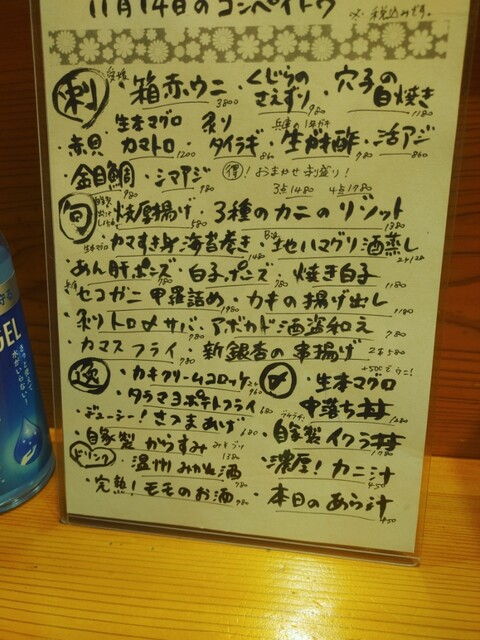 11月14日のコンペイトウ ※税込みです。
刺 箱赤ウニ 3800 ・くじらのさえずり 780 ・穴子の白焼き 1180
・赤貝 780 ・生本マグロ カマトロ 1200 ・炙りタイラギ 860 ・兵庫の1年ガキ 生ガキ酢 780 ・活アジ 860
・金目鯛 980 ・シマアジ 980 得!おまかせ刺盛り! 3点1480 4点1780
旬 焼厚揚げ 580 ・3種のカニのリゾット 1380
・生本マグロ カマすき身海苔巻き 1480 ・地ハマグリ酒蒸し
・あん肝ポンズ 780 ・白子ポンズ 780 ・焼き白子 1180
・セコガニ甲羅詰め 1980 ・カキの揚げ出し 1180
・炙りトロ〆サバ 780 ・アボカド酒盗和え 780
・カマスフライ 780 ・新銀杏の串揚げ 2本580
逸 ・カキクリームコロッケ 960
・タラマヨポテトフライ 680
・ジューシー!さつまあげ 680
・自家製からすみ 1380
ドリンク ・温州みかん酒 780
・完熟!モモのお酒 780
〆 ・生本マグロ 中落ち丼 1280
・自家製イクラ丼 1780
・濃厚!カニ汁 450
・本日のあら汁 450
GEL